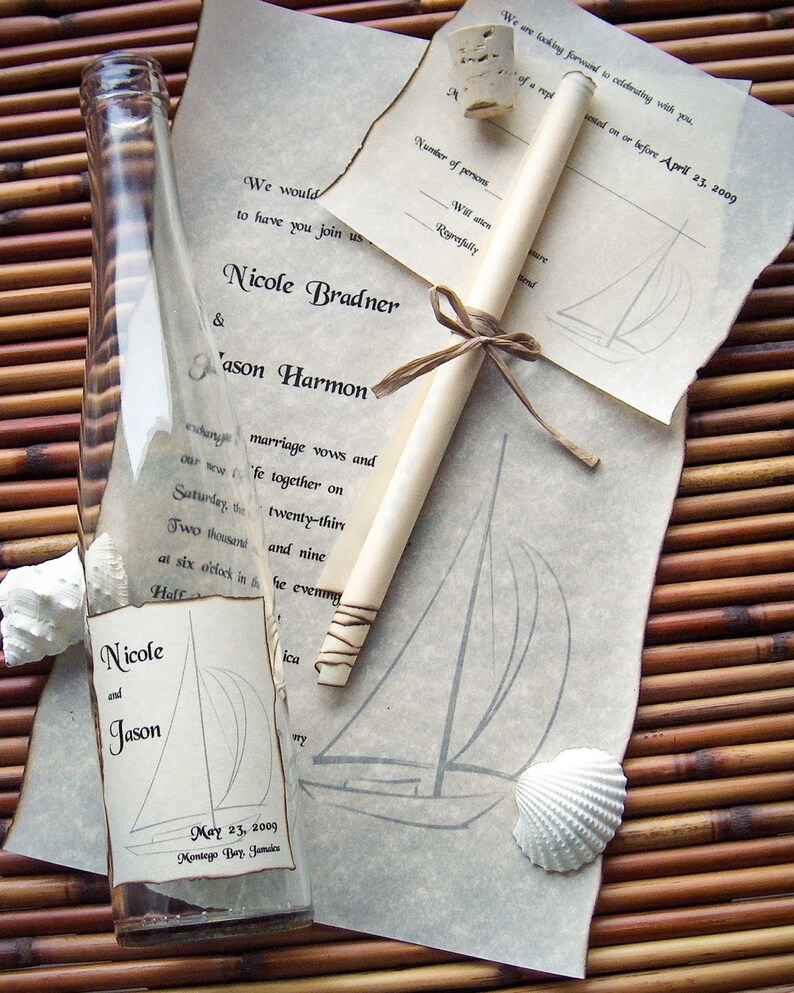 We are looking forward to celebrating with you.
of a
requested on or before April 23, 2009
Number of persons
Will
Regretfully
We would
to have you join us
Nicole Bradner
&
Jason Harmon
exchange marriage vows and
our new life together on
Saturday, the twenty-third
Two thousand and nine
at six o'clock in the evening
Half
Nicole
and
Jason
May 23, 2009
Montego Bay, Jamaica